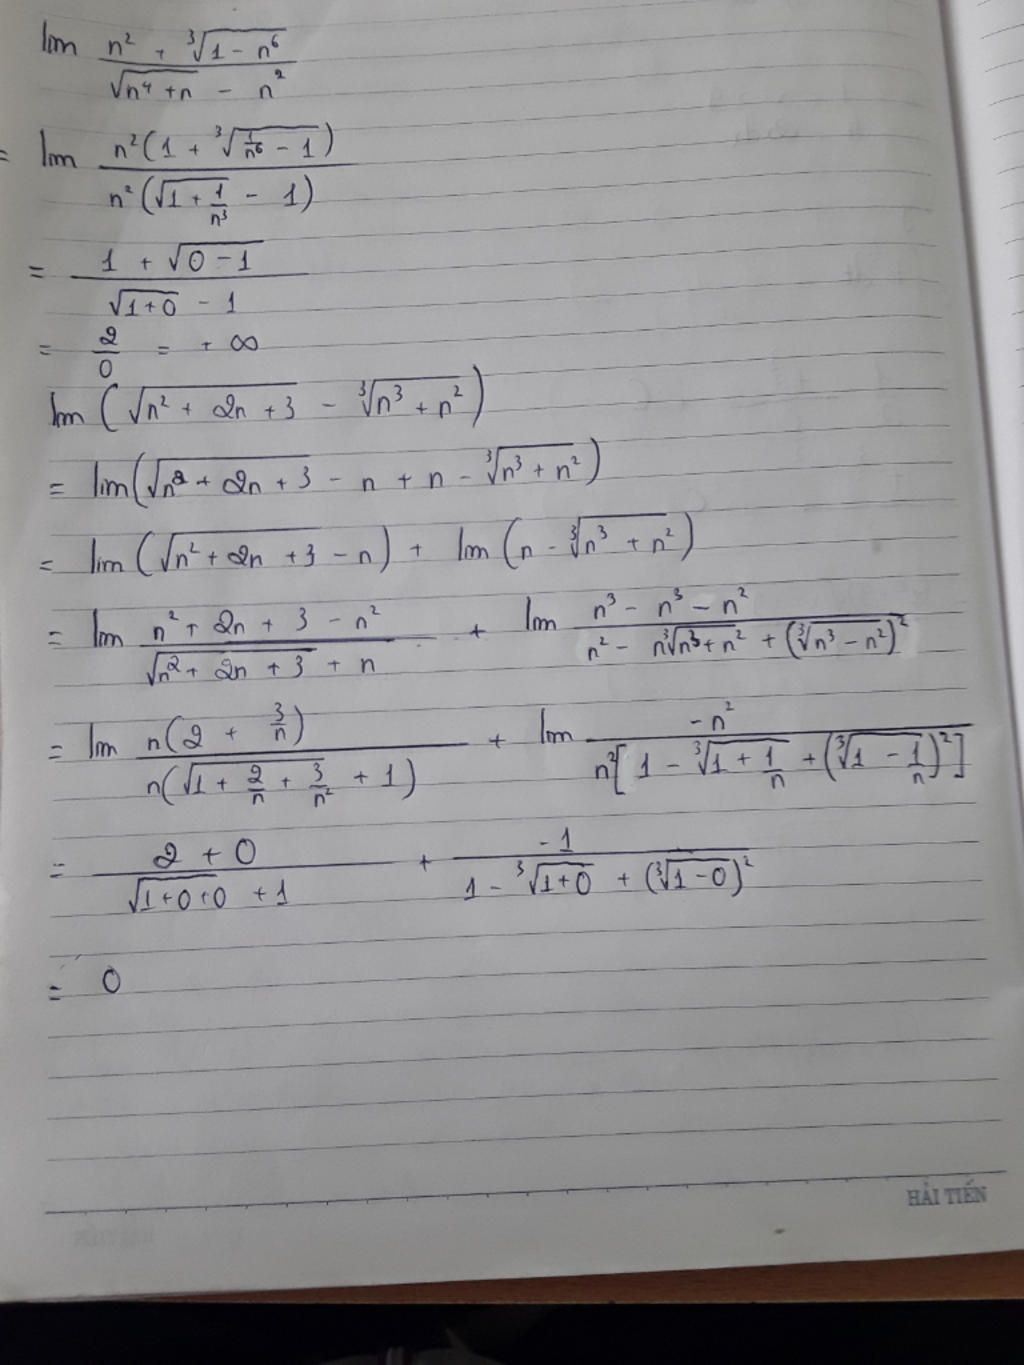 lim (n² + ∛(1 - n⁶)) / (√(n⁴ + n) - n²)
= lim (n²(1 + ∛(1/n⁶ - 1))) / (n²(√(1 + 1/n³) - 1))
= (1 + √(0 - 1)) / (√(1+0) - 1)
= 2/0 = +∞
lim (√(n² + 2n + 3) - ∛(n³ + n²))
= lim(√(n² + 2n + 3) - n + n - ∛(n³ + n²))
= lim (√(n² + 2n + 3) - n) + lim (n - ∛(n³ + n²))
= lim (n² + 2n + 3 - n²) / (√(n² + 2n + 3) + n) + lim (n³ - n³ - n²) / (n² - n∛(n³ + n²) + (∛(n³ - n²))²)
= lim (n(2 + 3/n)) / (n(√(1 + 2/n + 3/n²) + 1)) + lim (-n²) / (n²[1 - ∛(1 + 1/n) + (∛(1 - 1/n))²])
= (2 + 0) / (√(1+0+0) + 1) + (-1) / (1 - ∛(1+0) + (∛(1-0))²)
= 0
HẢI TIẾN